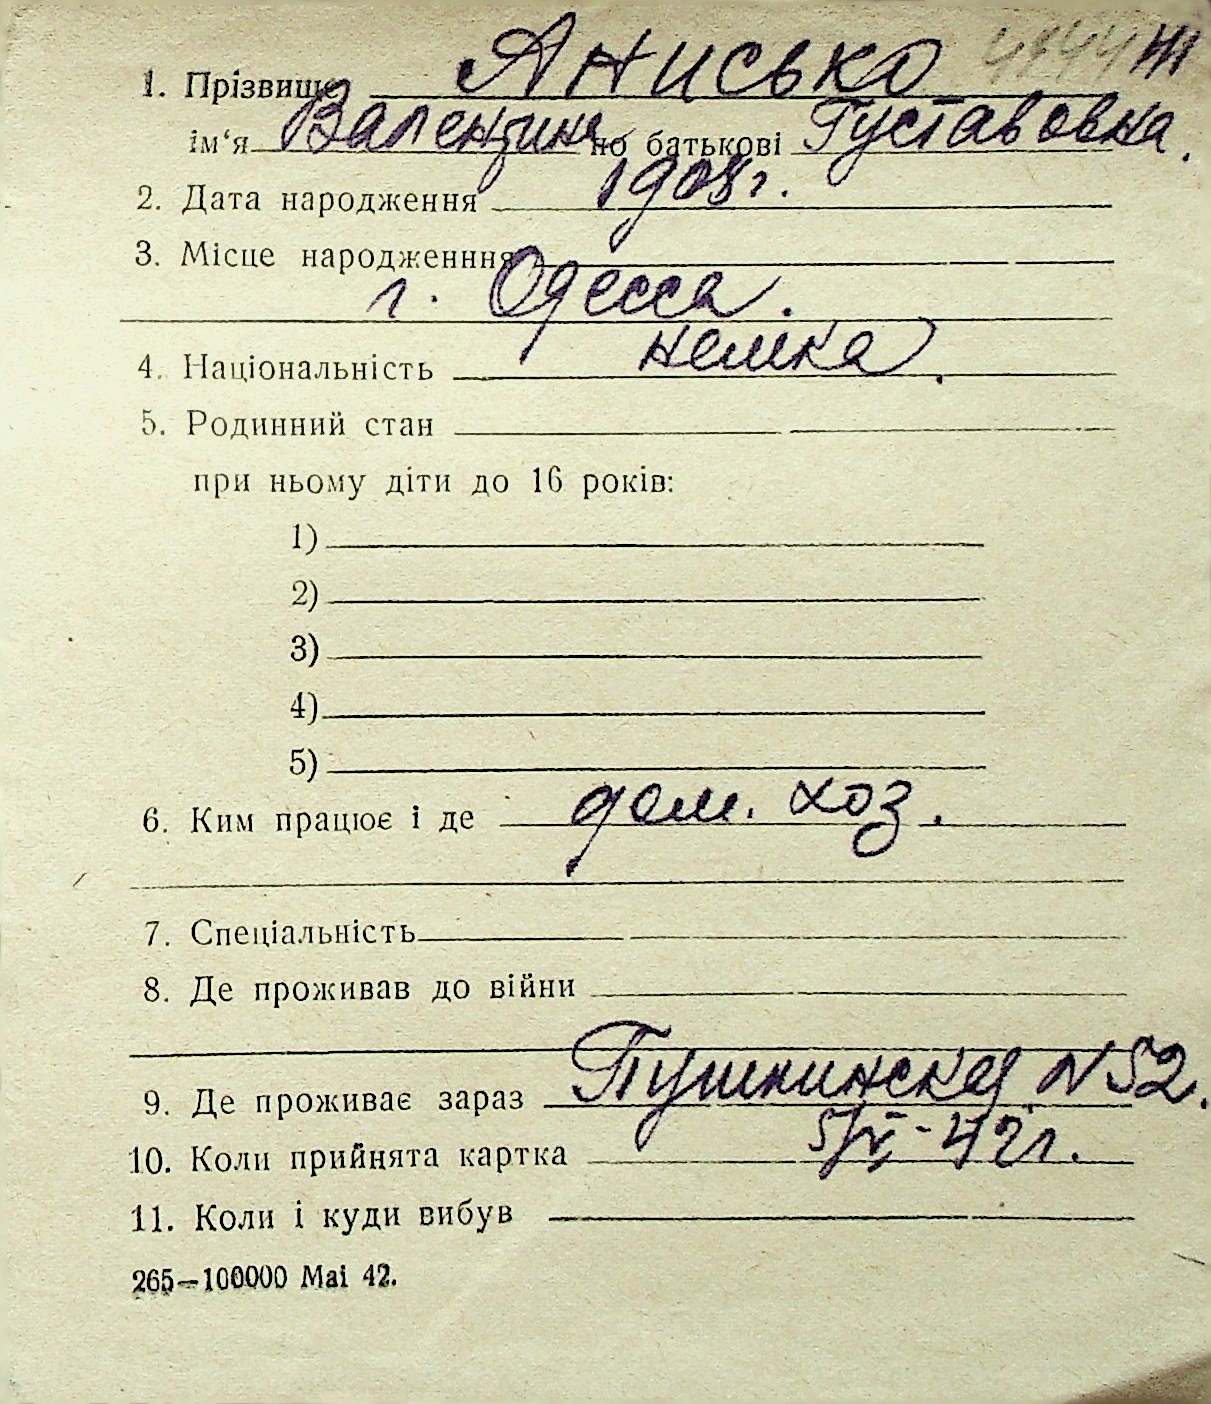 1. Прізвище Анисько 4844 Ж
ім‘я Валентина по батькові Густавовна.
2. Дата народження 1908 г.
3. Місце народженння
г. Одесса.
4. Національність немка.
5. Родинний стан
при ньому діти до 16 років:
1)
2)
3)
4)
5)
6. Ким працює і де дом. хоз.
7. Спеціальність
8. Де проживав до війни
9. Де проживає зараз Пушкинская N 52.
10. Коли прийнята картка 42 г.
11. Коли і куди вибув
265—100000 Mai 42.